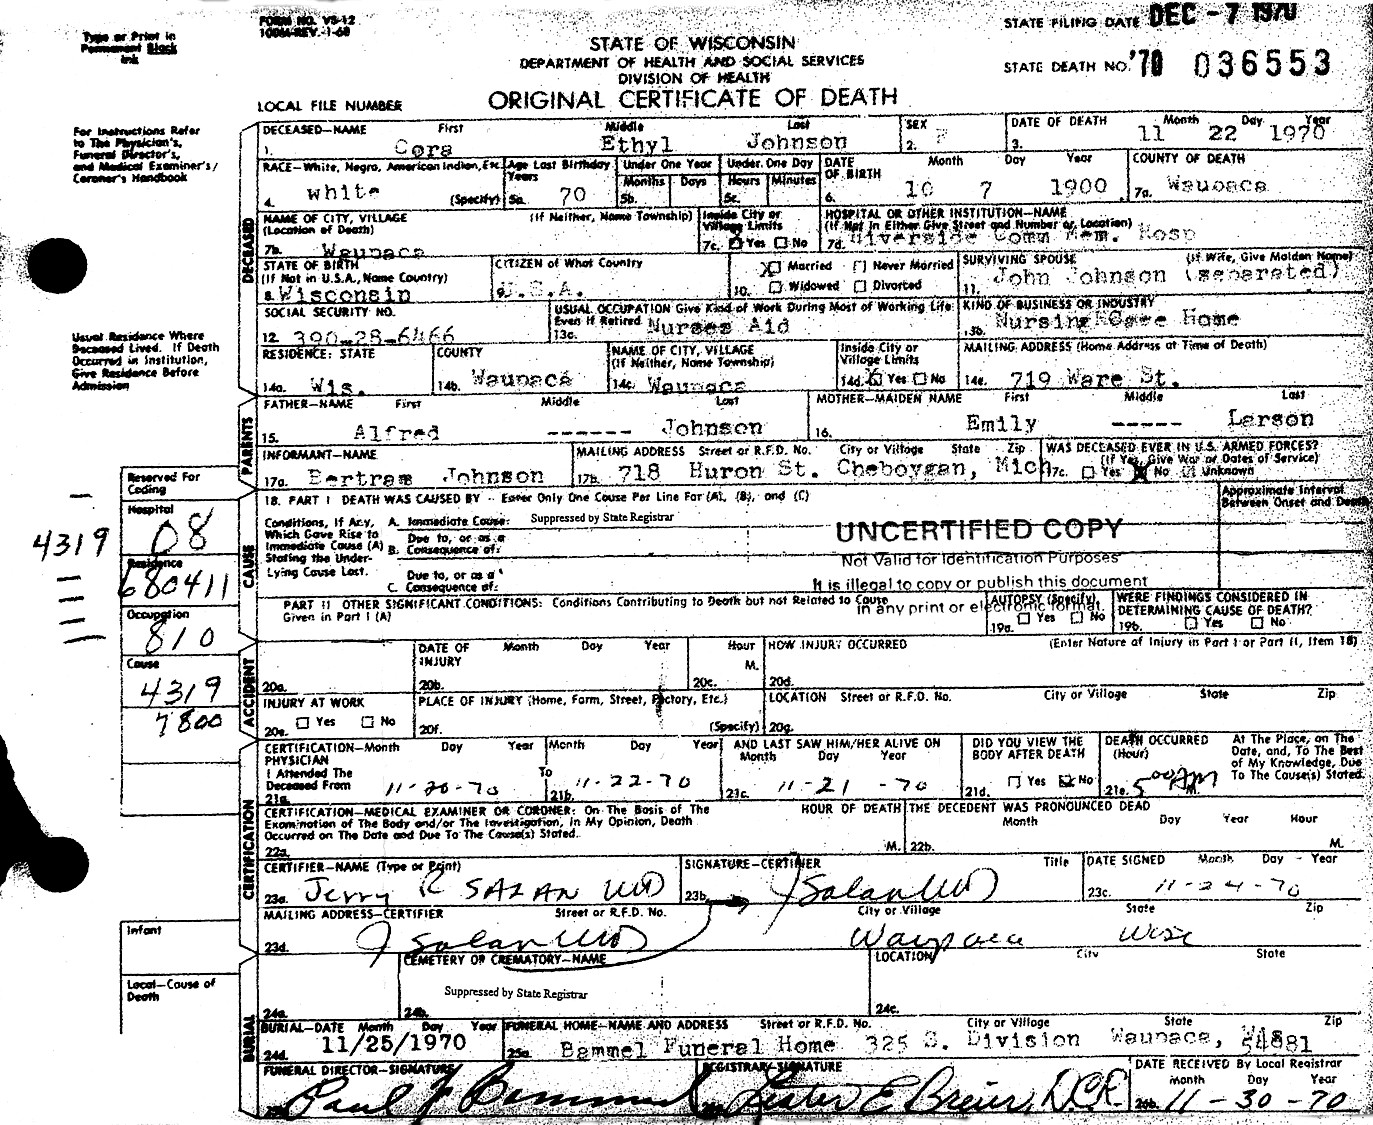 FORM NO. VS-12
100M-REV.-1-68
Type or Print in
Permanent Black
Ink
STATE FILING DATE DEC - 7 1970
STATE OF WISCONSIN
DEPARTMENT OF HEALTH AND SOCIAL SERVICES
DIVISION OF HEALTH
STATE DEATH NO. '70 036553
LOCAL FILE NUMBER
ORIGINAL CERTIFICATE OF DEATH
For Instructions Refer
to The Physician's,
Funeral Director's,
and Medical Examiner's/
Coroner's Handbook
DECEASED
DECEASED—NAME First Middle Last SEX DATE OF DEATH Month Day Year
1. Cora Ethyl Johnson 2. F 3. 11 22 1970
RACE—White, Negro, American Indian, Etc. Age Last Birthday Under One Year Under One Day DATE OF BIRTH Month Day Year COUNTY OF DEATH
4. white (Specify) Years 5a. 70 Months Days 5b. Hours Minutes 5c. 6. 10 7 1900 7a. Waupaca
NAME OF CITY, VILLAGE (If Neither, Name Township) Inside City or HOSPITAL OR OTHER INSTITUTION—NAME
(Location of Death) Village Limits (If Not in Either Give Street and Number or Location)
7b. Waupaca 7c. Yes No 7d. Riverside Comm Mem. Hosp
STATE OF BIRTH CITIZEN of What Country Married Never Married SURVIVING SPOUSE (If Wife, Give Maiden Name)
(If Not in U.S.A., Name Country)
8. Wisconsin 9. U.S.A. 10. Widowed Divorced 11. John Johnson (separated)
SOCIAL SECURITY NO. USUAL OCCUPATION Give Kind of Work During Most of Working Life KIND OF BUSINESS OR INDUSTRY
Even If Retired
12. 390-28-6466 13a. Nurses Aid 13b. Nursing Care Home
Usual Residence Where
Deceased Lived. If Death
Occurred in Institution,
Give Residence Before
Admission
RESIDENCE: STATE COUNTY NAME OF CITY, VILLAGE Inside City or MAILING ADDRESS (Home Address at Time of Death)
(If Neither, Name Township) Village Limits
14a. Wis. 14b. Waupaca 14c. Waupaca 14d. Yes No 14e. 719 Ware St.
PARENTS
FATHER—NAME First Middle Last MOTHER—MAIDEN NAME First Middle Last
15. Alfred ------ Johnson 16. Emily ----- Larson
INFORMANT—NAME MAILING ADDRESS Street or R.F.D. No. City or Village State Zip WAS DECEASED EVER IN U.S. ARMED FORCES?
(If Yes, Give War or Dates of Service)
17a. Bertram Johnson 17b. 718 Huron St. Cheboygan, Mich 17c. Yes No Unknown
Reserved For
Coding
Hospital
08
4319
Residence
680411
Occupation
810
Cause
4319
7800
Infant
Local—Cause of
Death
CAUSE
18. PART I DEATH WAS CAUSED BY - Enter Only One Cause Per Line For (A), (B), and (C) Approximate Interval
Between Onset and Death
Conditions, If Any, A. Immediate Cause: Suppressed by State Registrar
Which Gave Rise to Due to, or as a
Immediate Cause (A) B. Consequence of:
Stating the Under-
Lying Cause Last. Due to, or as a
C. Consequence of:
UNCERTIFIED COPY
Not Valid for Identification Purposes
It is illegal to copy or publish this document
in any print or electronic format.
PART II OTHER SIGNIFICANT CONDITIONS: Conditions Contributing to Death but not Related to Cause AUTOPSY (Specify) WERE FINDINGS CONSIDERED IN
Given in Part I (A) 19a. Yes No DETERMINING CAUSE OF DEATH?
19b. Yes No
ACCIDENT
DATE OF Month Day Year Hour HOW INJURY OCCURRED (Enter Nature of Injury in Part I or Part II, Item 18)
INJURY M.
20a. 20b. 20c. 20d.
INJURY AT WORK PLACE OF INJURY (Home, Farm, Street, Factory, Etc.) LOCATION Street or R.F.D. No. City or Village State Zip
20e. Yes No 20f. (Specify) 20g.
CERTIFICATION
CERTIFICATION—Month Day Year Month Day Year AND LAST SAW HIM/HER ALIVE ON DID YOU VIEW THE DEATH OCCURRED At The Place, on The
PHYSICIAN Month Day Year BODY AFTER DEATH (Hour) Date, and, To The Best
I Attended The To of My Knowledge, Due
Deceased From To The Cause(s) Stated.
21a. 11-20-70 21b. 11-22-70 21c. 11-21-70 21d. Yes No 21e. 5 00 AM M.
CERTIFICATION—MEDICAL EXAMINER OR CORONER: On The Basis of The HOUR OF DEATH THE DECEDENT WAS PRONOUNCED DEAD
Examination of The Body and/or The Investigation, In My Opinion, Death Month Day Year Hour
Occurred on The Date and Due To The Cause(s) Stated.
22a. M. 22b. M.
CERTIFIER—NAME (Type or Print) SIGNATURE—CERTIFIER Title DATE SIGNED Month Day Year
23a. Jerry R SALAN MD 23b. J Salan MD 23c. 11-24-70
MAILING ADDRESS—CERTIFIER Street or R.F.D. No. City or Village State Zip
23d. J Salan MD Waupaca Wisc
BURIAL
CEMETERY OR CREMATORY—NAME LOCATION City State
Suppressed by State Registrar
24a. 24b. 24c.
BURIAL—DATE Month Day Year FUNERAL HOME—NAME AND ADDRESS Street or R.F.D. No. City or Village State Zip
24d. 11/25/1970 25a. Bammel Funeral Home 325 S. Division Waupaca, Wis 54981
FUNERAL DIRECTOR—SIGNATURE REGISTRAR—SIGNATURE DATE RECEIVED BY Local Registrar
Month Day Year
Paul J Bammel Lester E Breier, D.C.R. 26b. 11-30-70